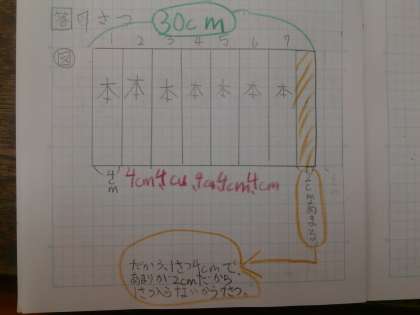 答 7さつ
30cm
2 3 4 5 6 7
図
本 本 本 本 本 本 本
4cm 4cm 4cm 4cm 4cm 4cm
2cmあまり
だから、1さつ4cmで、
あまりが2cmだから
1さつ入らないから7さつ。